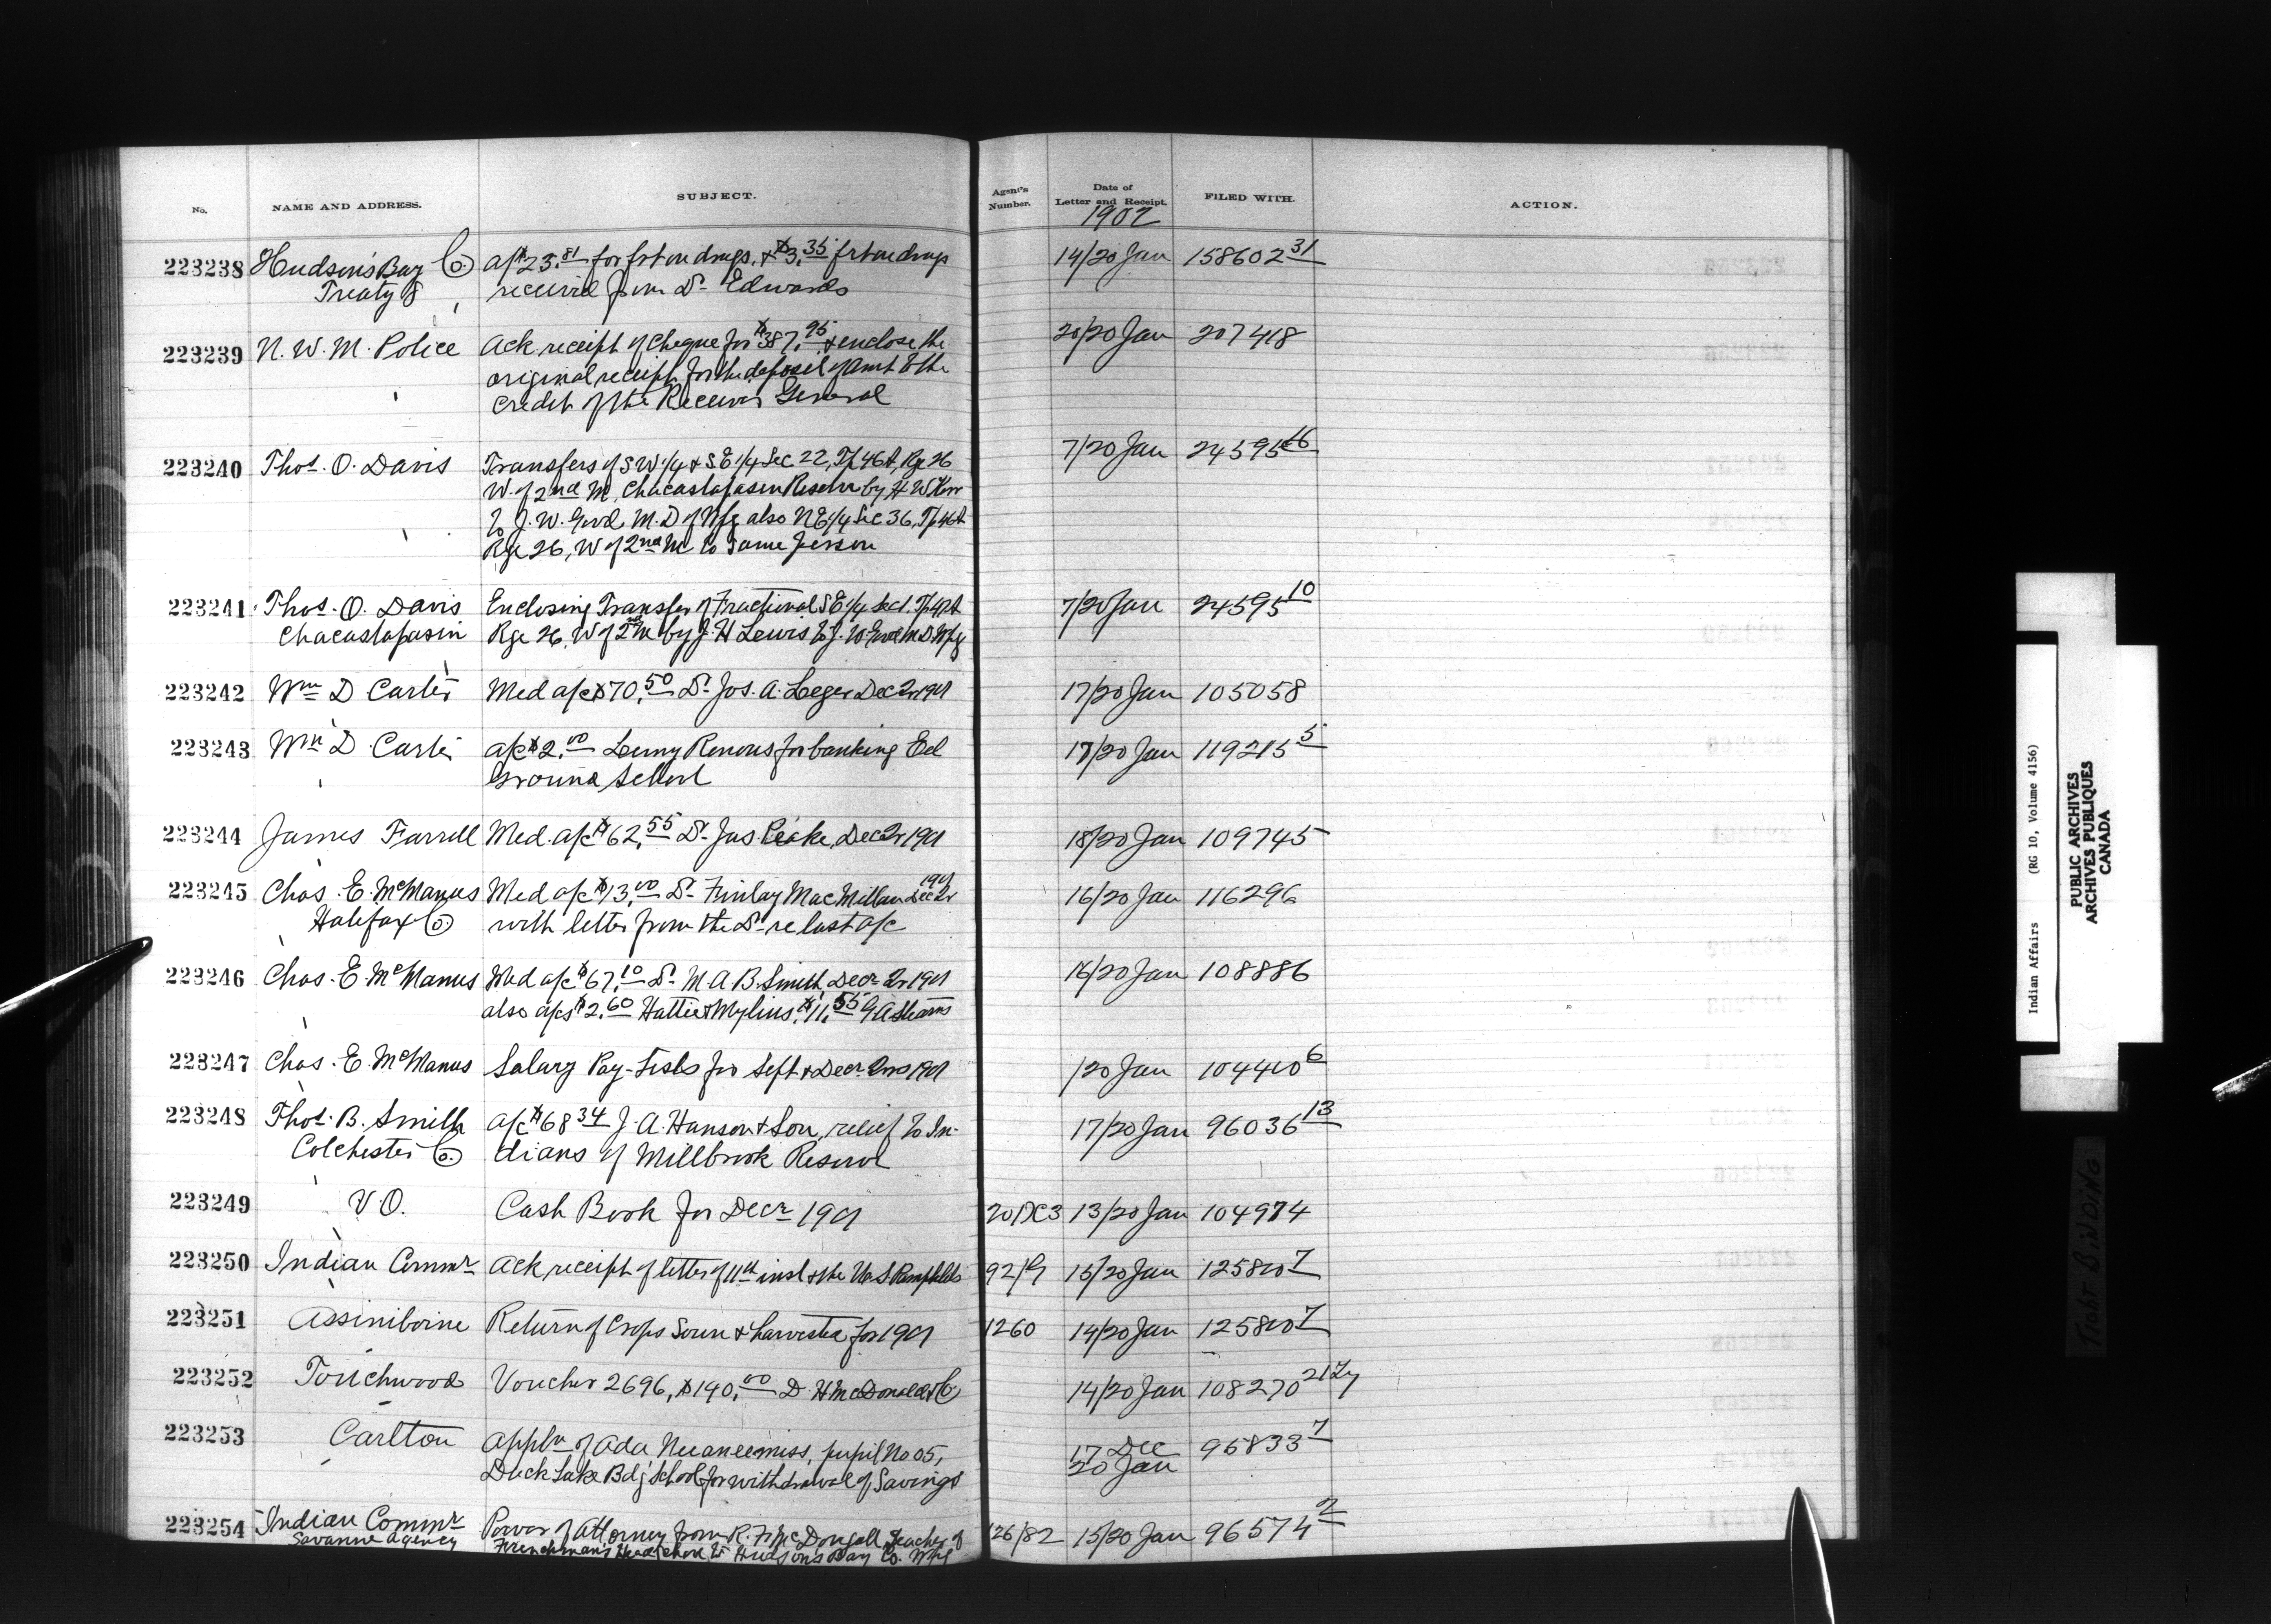 No. NAME AND ADDRESS. SUBJECT. Agent's Number. Date of Letter and Receipt. FILED WITH. ACTION.
1902
223238 Hudson's Bay Co. a/c $23.81 for frt on drugs, & $3.35 frt on drugs 14/20 Jan 158602 31
Treaty 8 received from Dr. Edwards
223239 N. W. M. Police Ack receipt of cheque for $387.95 & enclose the 20/20 Jan 207418
original receipt for the deposit of amt to the
credit of the Receiver General
223240 Thos. O. Davis Transfers of SW 1/4 & S.E 1/4 Sec 22, Tp 46A, Rge 26 7/20 Jan 24595
W. of 2nd M, Chacastapasin Reserve by H W Kerr
to J. W. Good M.D of Wpg also NE 1/4 Sec 36, Tp 46A
Rge 26, W of 2nd M to same person
223241 Thos. O. Davis Enclosing Transfer of Fractional SE 1/4 Sec 1. Tp 47A 7/20 Jan 24595 10
Chacastapasin Rge 26, W of 2nd M by J. H Lewis to J. W. Good M.D. Wpg
223242 Wm D Carter Med a/c $70.50 Dr Jos. A. Leger Dec Qr 1901 17/20 Jan 105058
223243 Wm D Carter a/c $2.00 Renous for banking Eel 17/20 Jan 119215 5
Ground School
223244 James Farrell Med. a/c $62.55 Dr Jas. Peake, Dec Qr 1901 18/20 Jan 109745
223245 Chas. E. McManus Med a/c $13.00 Dr Finlay MacMillan Dec Qr 1901 16/20 Jan 116296
Halifax Co with letter from the Dr re last a/c
223246 Chas. E. McManus Med a/c $67.10 Dr M. A. B. Smith, Decr Qr 1901 16/20 Jan 108886
also a/cs $2.60 Hattie & Mylius, $11.55 G A Stearns
223247 Chas. E. McManus Salary Pay-Lists for Sept & Decr Qrs 1901 /20 Jan 104410 6
223248 Thos. B. Smith a/c $68 34 J. A. Hanson & Son, relief to In- 17/20 Jan 96036 13
Colchester Co. dians of Millbrook Reserve
223249 V. O. Cash Book for Decr 1901 20/DC3 13/20 Jan 104974
223250 Indian Commr Ack receipt of letter of 11th inst & the U.S Pamphlets 92/9 15/20 Jan 125800 7
223251 Assiniboine Return of Crops Sown & harvested for 1901 1260 14/20 Jan 125800 7
223252 Touchwood Voucher 2696, $140.00 D. H McDonald & Co 14/20 Jan 108270
223253 Carlton Appln of Ada Neeaneemiss, pupil No 05, 17 Dec 95833 7
Duck Lake Bdg School for withdrawal of Savings 20 Jan
223254 Indian Commr Power of Attorney from R. F. McDougall, Teacher of 126/82 15/20 Jan 96574 2
Savanne Agency Frenchman's Head School to Hudson's Bay Co. Wpg
Indian Affairs (RG 10, Volume 4156)
PUBLIC ARCHIVES
ARCHIVES PUBLIQUES
CANADA
TIGHT BINDING